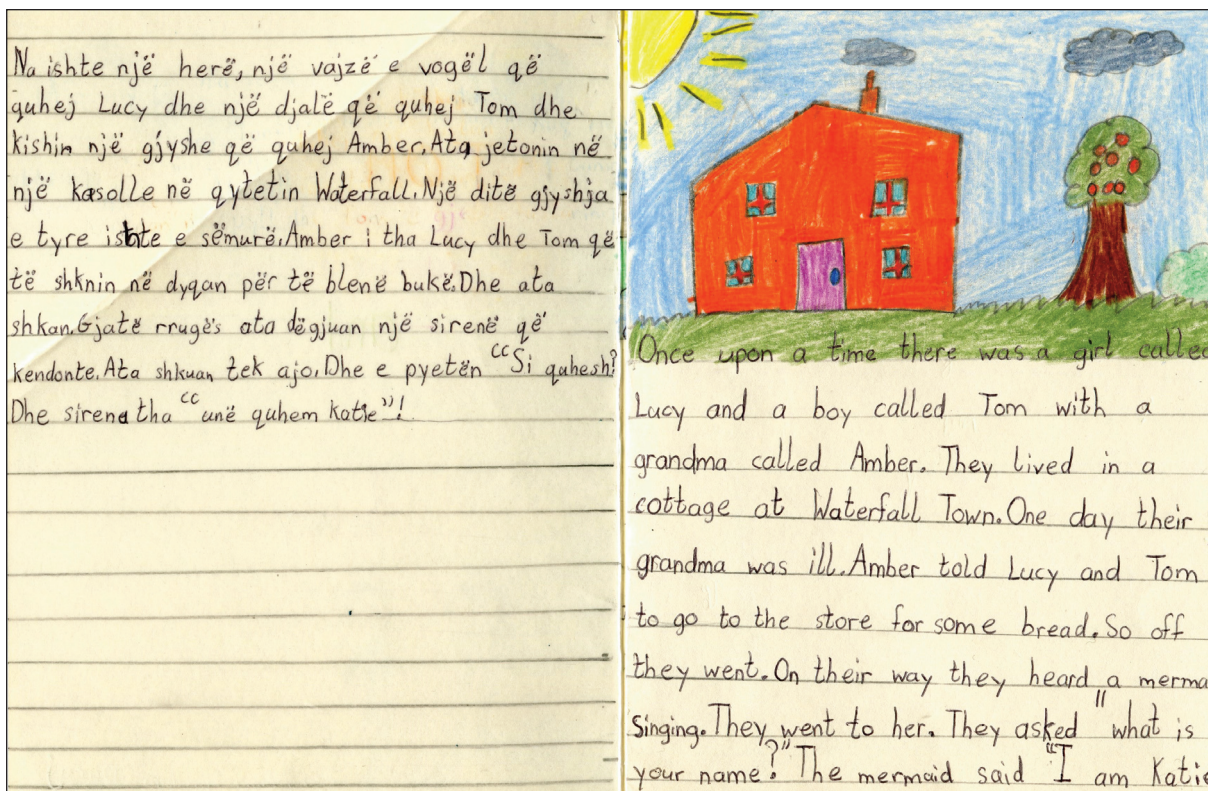 Na ishte një herë, një vajzë e vogël që
quhej Lucy dhe një djalë që quhej Tom dhe
kishin një gjyshe që quhej Amber. Ata jetonin në
një kasolle në qytetin Waterfall. Një ditë gjyshja
e tyre ishte e sëmurë. Amber i tha Lucy dhe Tom që
të shknin në dyqan për të blenë bukë. Dhe ata
shkan. Gjatë rrugës ata dëgjuan një sirenë që
kendonte. Ata shkuan tek ajo. Dhe e pyetën “Si quhesh?
Dhe sirena tha “unë quhem katie”!
Once upon a time there was a girl called
Lucy and a boy called Tom with a
grandma called Amber. They lived in a
cottage at Waterfall Town. One day their
grandma was ill. Amber told Lucy and Tom
to go to the store for some bread. So off
they went. On their way they heard a merma
singing. They went to her. They asked "what is
your name?" The mermaid said "I am Katie